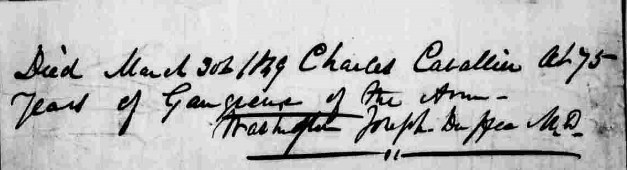 Died March 30th 1849 Charles Cavallier At 75
Years of Gangrene of the Arm -
Washington Joseph Duffee M.D.
"